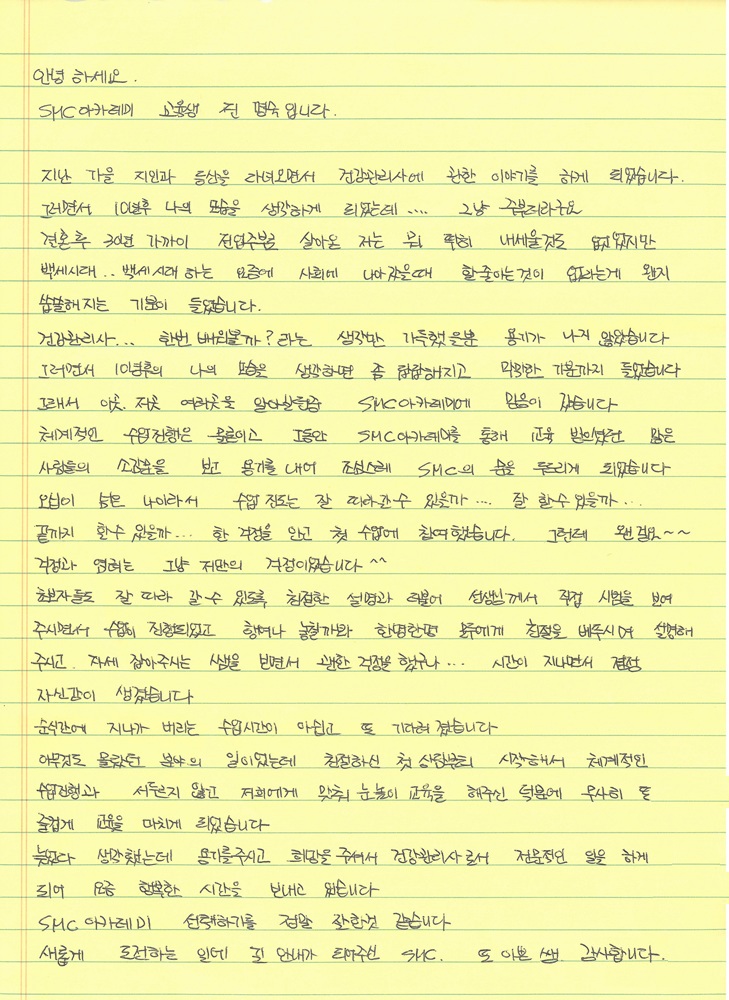 안녕 하세요.
SMC아카데미 교육생 진 명숙 입니다.
지난 가을 지인과 등산을 다녀오면서 건강관리사에 관한 이야기를 하게 되었습니다.
그러면서 10년후 나의 모습을 생각하게 되었는데.... 그냥 주부더라구요
결혼후 30년 가까이 전업주부로 살아온 저는 뭐 특히 내세울것도 없었지만
백세시대.. 백세시대 하는 요즘에 사회에 나아갔을때 할줄아는것이 없다는게 왠지
씁쓸해지는 기분이 들었습니다.
건강관리사... 한번 배워볼까? 라는 생각만 가득했을뿐 용기가 나지 않았습니다
그러면서 10년후의 나의 모습을 생각하면 좀 답답해지고 막막한 기분까지 들었습니다
그래서 이곳. 저곳 여러곳을 알아살펴본즘 SMC아카데미에 믿음이 갔습니다
체계적인 수업진행은 물론이고 그동안 SMC아카데미를 통해 교육 받으셨던 많은
사람들의 소감문을 보고 용기를 내어 조심스레 SMC의 문을 두드리게 되었습니다
오십이 넘은 나이라서 수업 진도는 잘 따라갈수 있을까... 잘 할수 있을까...
끝까지 할수 있을까... 한 걱정을 안고 첫 수업에 참여했습니다. 그런데 왠걸요~~
걱정과 염려는 그냥 저만의 걱정이었습니다^^
초보자들도 잘 따라 갈 수 있도록 친절한 설명과 더불어 선생님께서 직접 시범을 보여
주시면서 수업이 진행되었고 행여나 놓칠까봐 한명한명 모두에게 친절을 베푸시며 설명해
주시고. 자세 잡아주시는 쌤을 보면서 괜한 걱정을 했구나... 시간이 지나면서 점점
자신감이 생겼습니다
순식간에 지나가 버리는 수업시간이 아쉽고 또 기다려 졌습니다
아무것도 몰랐던 분야의 일이었는데 친절하신 첫 상담부터 시작해서 체계적인
수업진행과 서두르지 않고 저희에게 맞춰 눈높이 교육을 해주신 덕분에 무사히 또
즐겁게 교육을 마치게 되었습니다
늦었다 생각했는데 용기를주시고 희망을 주셔서 건강관리사로서 전문적인 일을 하게
되어 요즘 행복한 시간을 보내고 있습니다
SMC 아카데미 선택하기를 정말 잘한것 같습니다
새롭게 도전하는 일에 길 안내가 되어주신 SMC. 또 이쁜 쌤. 감사합니다.